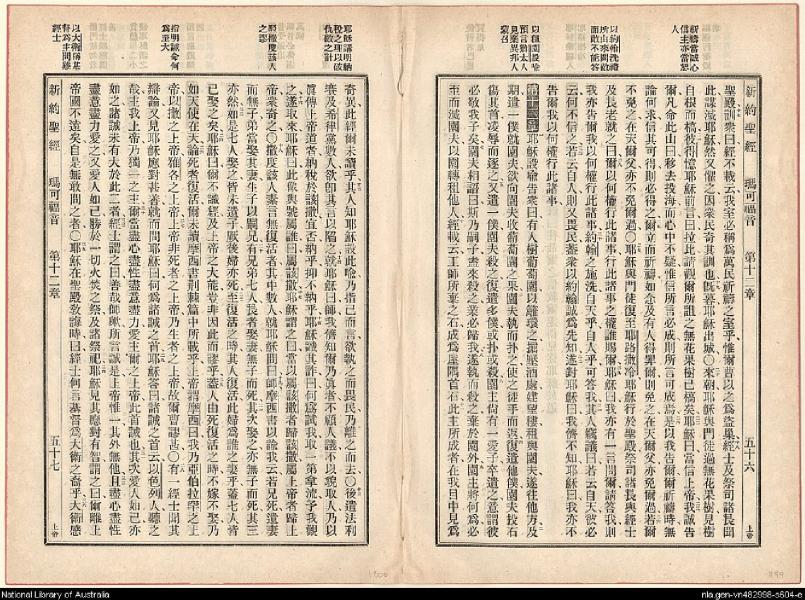 新禱當誠心
信主亦當恕
人
以約翰洗禮
所由來問敵
而敵不能答
以葡萄園喻
預言猶太人
見棄異邦人
蒙召
新約聖經 瑪可福音 第十二章 五十六 上帝
聖殿訓衆曰經不載云我室必稱爲萬民祈禱之室乎惟爾曹以之爲盜巢經士及祭司諸長聞
此謀滅耶穌然又懼之因衆民奇其訓也既暮耶穌出城〇來朝耶穌與門徒過無花果樹見樹
自根而槁彼得憶耶穌前言曰拉比請觀爾所詛之無花果樹已槁矣耶穌曰當信上帝我誠告
爾凡命此山曰移去投海而心中不疑惟信所言必成則所言可成焉是以我告爾爾祈禱時無
論何求信其可得則必得之爾立而祈禱如念及有人得罪爾則免之在天爾父亦免爾過若爾
不免之在天爾父亦不免爾過〇耶穌與門徒復至耶路撒冷耶穌行於聖殿祭司諸長與經士
及長老就之曰爾以何權行此諸事行此諸事之權誰賜爾耶穌曰我亦有一言問爾請答我則
我亦告爾我以何權行此諸事約翰之施洗自天乎自人乎可答我其人竊議曰若云自天彼必
云何不信之若云自人則又畏民蓋衆以約翰誠爲先知遂對耶穌曰我儕不知耶穌曰我亦不
告爾我以何權行此諸事
第十二章 耶穌設喻告衆曰有人樹葡萄園以籬環之掘壓酒處建望樓租與園夫遂往他方及
期遣一僕就園夫欲向園夫收葡萄園之果園夫執而扑之使之徒手而返復遣他僕園夫投石
傷其首凌辱而逐之又遣一僕園夫殺之復遣多僕或扑或殺園主尚有一愛子卒遣之意謂彼
必敬我子矣園夫相語曰斯乃嗣子盍來殺之業必歸我遂執而殺之棄於園外園主將何爲必
至而滅園夫以園轉租他人經載云工師所棄之石成爲屋隅首石此主所成者在我目中見爲
耶穌講明納
稅之理以破
仇敵之計
耶穌撒度該人
之謬
指明誡命何
爲至大
以大衛稱基
督爲主問難
經士
新約聖經 瑪可福音 第十二章 五十七 上帝
奇異此經爾未讀乎其人知耶穌設此喻乃指己而言欲執之而畏民乃離之而去〇後遣法利
賽及希律黨數人欲即其言以陷之就耶穌曰師我儕知爾乃眞者不顧人議不以貌取人乃以
眞傳上帝道者納稅於該撒宜否納乎抑不納乎耶穌識其詐曰何爲試我取一第拿流予我觀
之遂取來耶穌曰此像與號屬誰曰屬該撒耶穌謂之曰當以屬該撒者歸該撒屬上帝者歸上
帝衆奇之〇撒度該人素言無復活者其中數人就耶穌問曰師摩西書以諭我云若兄死遺妻
而無子弟當娶其妻生子以嗣兄有兄弟七人長者娶妻無子而死其次娶之亦無子而死其三
亦然如是七人娶之皆未遺子厥後婦亦死至復活之時其人復活此婦爲誰之妻乎蓋七人者
已娶之矣耶穌曰爾不識經及上帝之大能豈非因此而謬乎蓋人由死復活之時不嫁不娶乃
如天使在天論死者復活爾未讀摩西書荊棘篇中所載乎上帝謂摩西曰我乃亞伯拉罕之上
帝以撒之上帝雅各之上帝上帝非死者之上帝乃生者之上帝故爾曹謬甚〇有一經士聞其
辯論又見耶穌應對甚善就而問耶穌曰何爲諸誡之首耶穌答曰諸誡之首云以色列人聽之
哉主我上帝乃獨一之主爾當盡心盡性盡意盡力愛主爾之上帝此首誡也其次愛人如己亦
如之諸誡未有大於此二者經士謂之曰善哉師歟所言誠是上帝惟一其外無他且盡心盡性
盡意盡力愛之又愛人如己勝於一切火焚之祭及諸祭祀耶穌見其應對有智謂之曰爾離上
帝國不遠矣自是無敢問之者〇耶穌在聖殿敎誨時曰經士何言基督爲大衛之裔乎大衛感
National Library of Australia
nla.gen-vn482998-s604-e